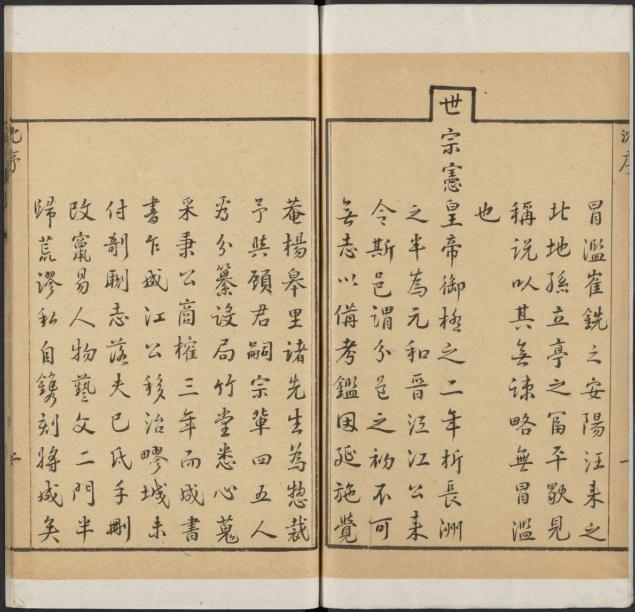 冒濫崔銑之安陽汪來之
北地孫立亭之富平歇見
稱說以其無疎略無冒濫
也
世宗憲皇帝御極之二年析長洲
之半為元和晉江江公來
令斯邑謂分邑之初不可
無志以備考鑑因延施覺
菴楊皋里諸先生為總裁
予與顧君嗣宗輩四五人
為分纂設局竹堂悉心蒐
采秉公商榷三年而成書
書乍成江公移治疁城未
付剞劂志落夫已氏手刪
改竄易人物藝文二門半
歸荒謬私自鐫刻將成矣
沈序